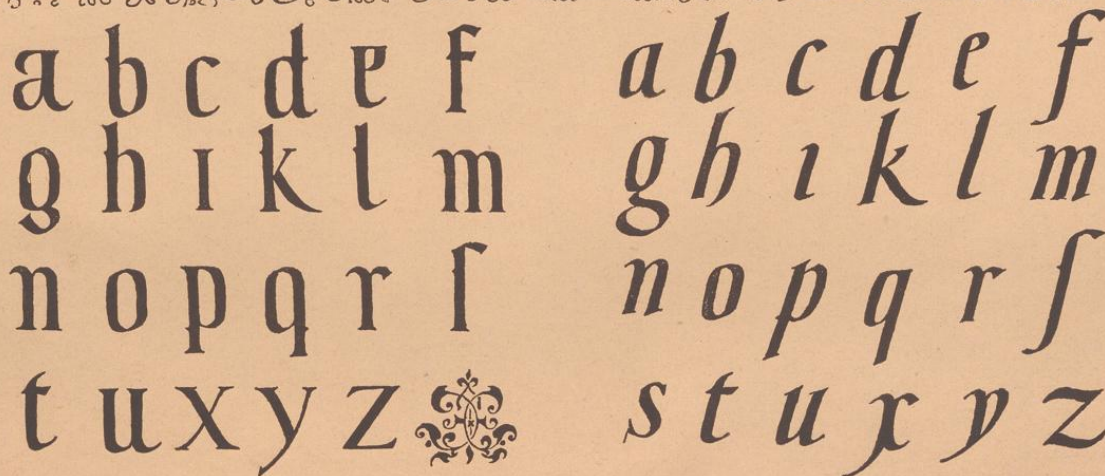 a b c d e f
g h ı k l m
n o p q r ſ
t u x y z
a b c d e f
g h ı k l m
n o p q r ſ
s t u x y z